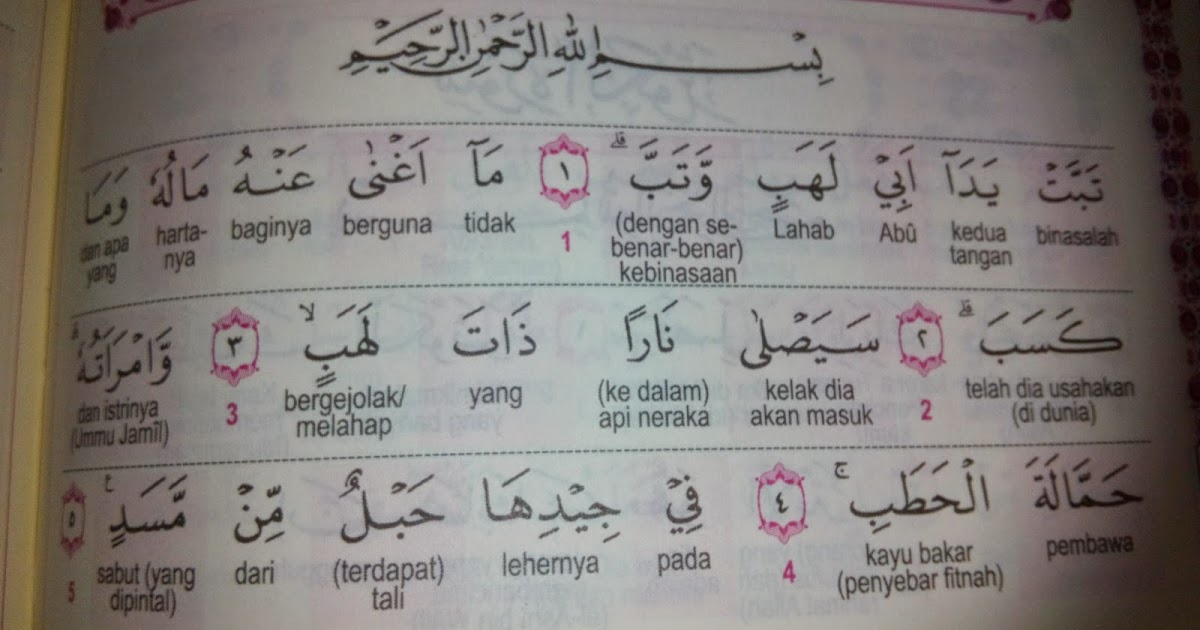 بِسْمِ اللهِ الرَّحْمٰنِ الرَّحِيْمِ
تَبَّتْ يَدَآ اَبِيْ لَهَبٍ وَّتَبَّ ۗ ١ مَآ اَغْنٰى عَنْهُ مَالُهٗ وَمَا
binasalah kedua tangan Abû Lahab (dengan se-benar-benar) kebinasaan 1 tidak berguna baginya harta-nya dan apa yang
كَسَبَ ۗ ٢ سَيَصْلٰى نَارًا ذَاتَ لَهَبٍ ۙ ٣ وَّامْرَاَتُهٗ ۗ
telah dia usahakan (di dunia) 2 kelak dia akan masuk (ke dalam) api neraka yang bergejolak/ melahap 3 dan istrinya (Ummu Jamîl)
حَمَّالَةَ الْحَطَبِ ۚ ٤ فِيْ جِيْدِهَا حَبْلٌ مِّنْ مَّسَدٍ ࣖ ٥
pembawa kayu bakar (penyebar fitnah) 4 pada lehernya (terdapat) tali dari sabut (yang dipintal) 5